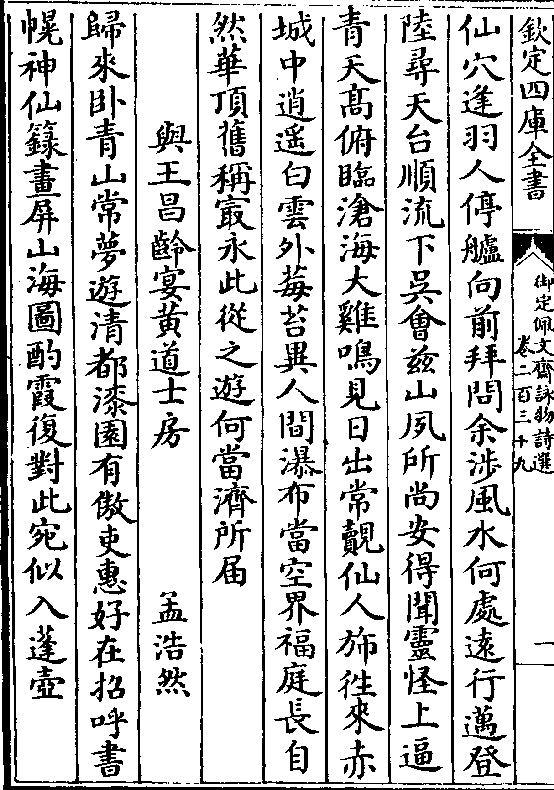 欽定四庫全書
御定佩文齋詠物詩選
卷二百三十九
一
仙穴逢羽人停艫向前拜問余涉風水何處遠行邁登
陸尋天台順流下吳會兹山夙所尚安得聞靈怪上逼
青天髙俯臨滄海大雞鳴見日出常覿仙人斾徃來赤
城中逍遥白雲外莓苔異人間瀑布當空界福庭長自
然華頂舊稱㝡永此從之遊何當濟所届
與王昌齡宴黄道士房
孟浩然
歸來卧青山常夢遊清都漆園有傲吏惠好在招呼書
幌神仙籙畫屏山海圖酌霞復對此宛似入蓬壺